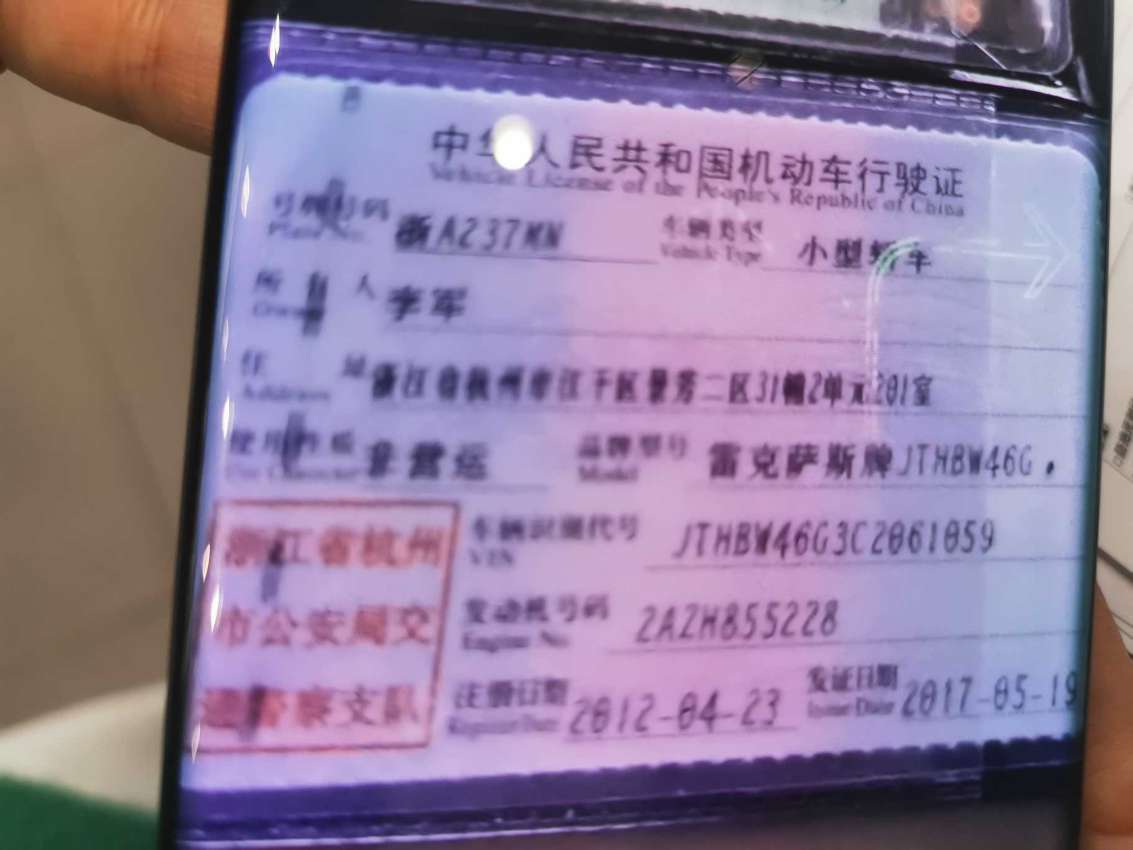 中华人民共和国机动车行驶证
Vehicle License of the People's Republic of China
号牌号码 浙A237MN 车辆类型 小型轿车
Plate No. Vehicle Type
所有人 李军
Owner
住址 浙江省杭州市江干区景芳二区31幢2单元201室
Address
使用性质 非营运 品牌型号 雷克萨斯牌JTHBW46G
Use Character Model
浙江省杭州
市公安局交
通警察支队
车辆识别代号 JTHBW46G3C2061059
VIN
发动机号码 2AZH855228
Engine No.
注册日期 2012-04-23 发证日期 2017-05-19
Register Date Issue Date